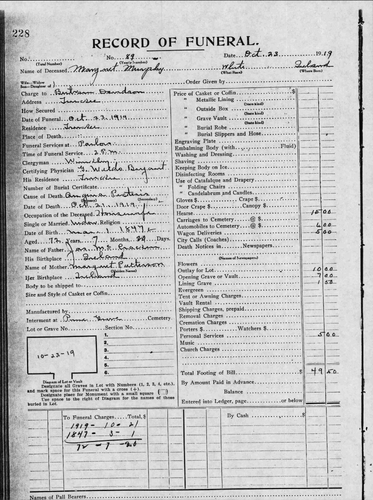 228
RECORD OF FUNERAL.
No. No. 89 Date Oct. 23 1919
(Total Number) (Yearly Number)
Name of Deceased Margaret Murphy White Ireland
(What Race) (Where Born)
Order Given by
Charge to Davidson
Address
How Secured
Date of Funeral Oct. 23, 1919
Residence
Place of Death
Funeral Services at Parlors
Time of Funeral Service 2 P.M.
Clergyman
Certifying Physician
His Residence
Number of Burial Certificate
Cause of Death Angina Pectoris
Date of Death Oct 21, 1919
Occupation of the Deceased Housewife
Single or Married Widow Religion
Date of Birth Mar. 1 1847
Aged 72 Years, 7 Months, 20 Days.
Name of Father
His Birthplace Ireland
Name of Mother Margaret Patterson
Her Birthplace Ireland
Body to be shipped to
Size and Style of Casket or Coffin
Manufactured by
Interment at Cemetery
Lot or Grave No. Section No.
1.
2.
3.
4.
5.
6.
10-23-19
Diagram of Lot or Vault
Designate all Graves in Lot with Numbers (1, 2, 3, 4, etc.),
and mark space for this Funeral with a cross (+)
Designate place for Monument with a small square
Use space to the right of Diagram for the names of those
buried in Lot.
Price of Casket or Coffin
" Metallic Lining
" Outside Box
" Grave Vault
" Burial Robe
" Burial Slippers and Hose
Engraving Plate
Embalming Body (with Fluid)
Washing and Dressing
Shaving
Keeping Body on Ice
Disinfecting Rooms
Use of Catafalque and Drapery
" Folding Chairs
" Candelabrum and Candles
Gloves $ Crape $
Door Crape $ Canopy $
Hearse 15 00
Carriages to Cemetery @ $
Automobiles to Cemetery @ $ 6 00
Wagon Deliveries 5 00
City Calls (Coaches)
Death Notices in Newspapers
Flowers
Outlay for Lot 10 00
Opening Grave or Vault 7 00
Lining Grave 1 50
Evergreen
Tent or Awning Charges
Vault Rental
Shipping Charges, prepaid
Removal Charges
Cremation Charges
Porters $ Watchers $
Personal Services 5 00
Music
Church Charges
Total Footing of Bill, $ 49 50
By Amount Paid in Advance
Balance
Entered into Ledger, page or below.
To Funeral Charges Total, $
1919 - 10 - 21
1847 - 3 - 1
72 - 7 - 20
By Cash $
Names of Pall Bearers